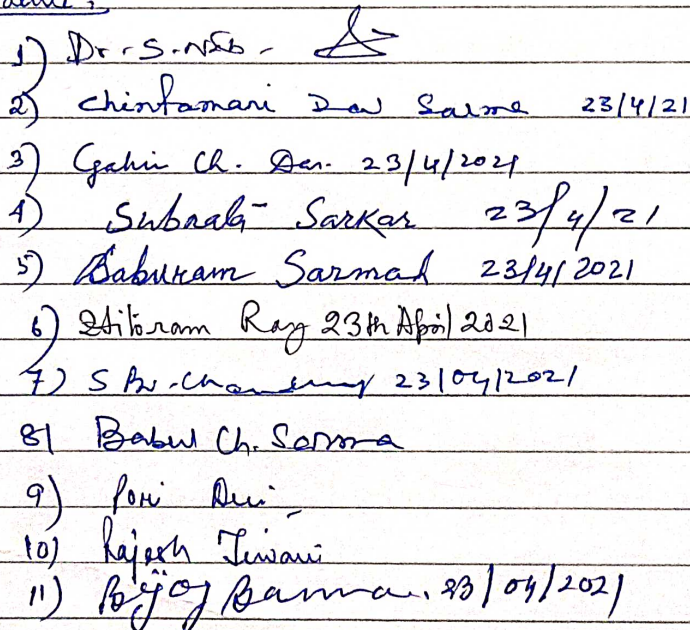 1) Dr. S. Nib.
2) Chintamani Das Sarma 23/4/21
3) Gahin Ch. Das. 23/4/2021
4) Subrata Sarkar 23/4/21
5) Baburam Sarmah 23/4/2021
6) Hitoram Ray 23th April 2021
7) S Br. 23/04/2021
8) Babul Ch. Sarma
9) Devi
10) Rajesh Tiwari
11) Bijoy Barman. 23/04/2021